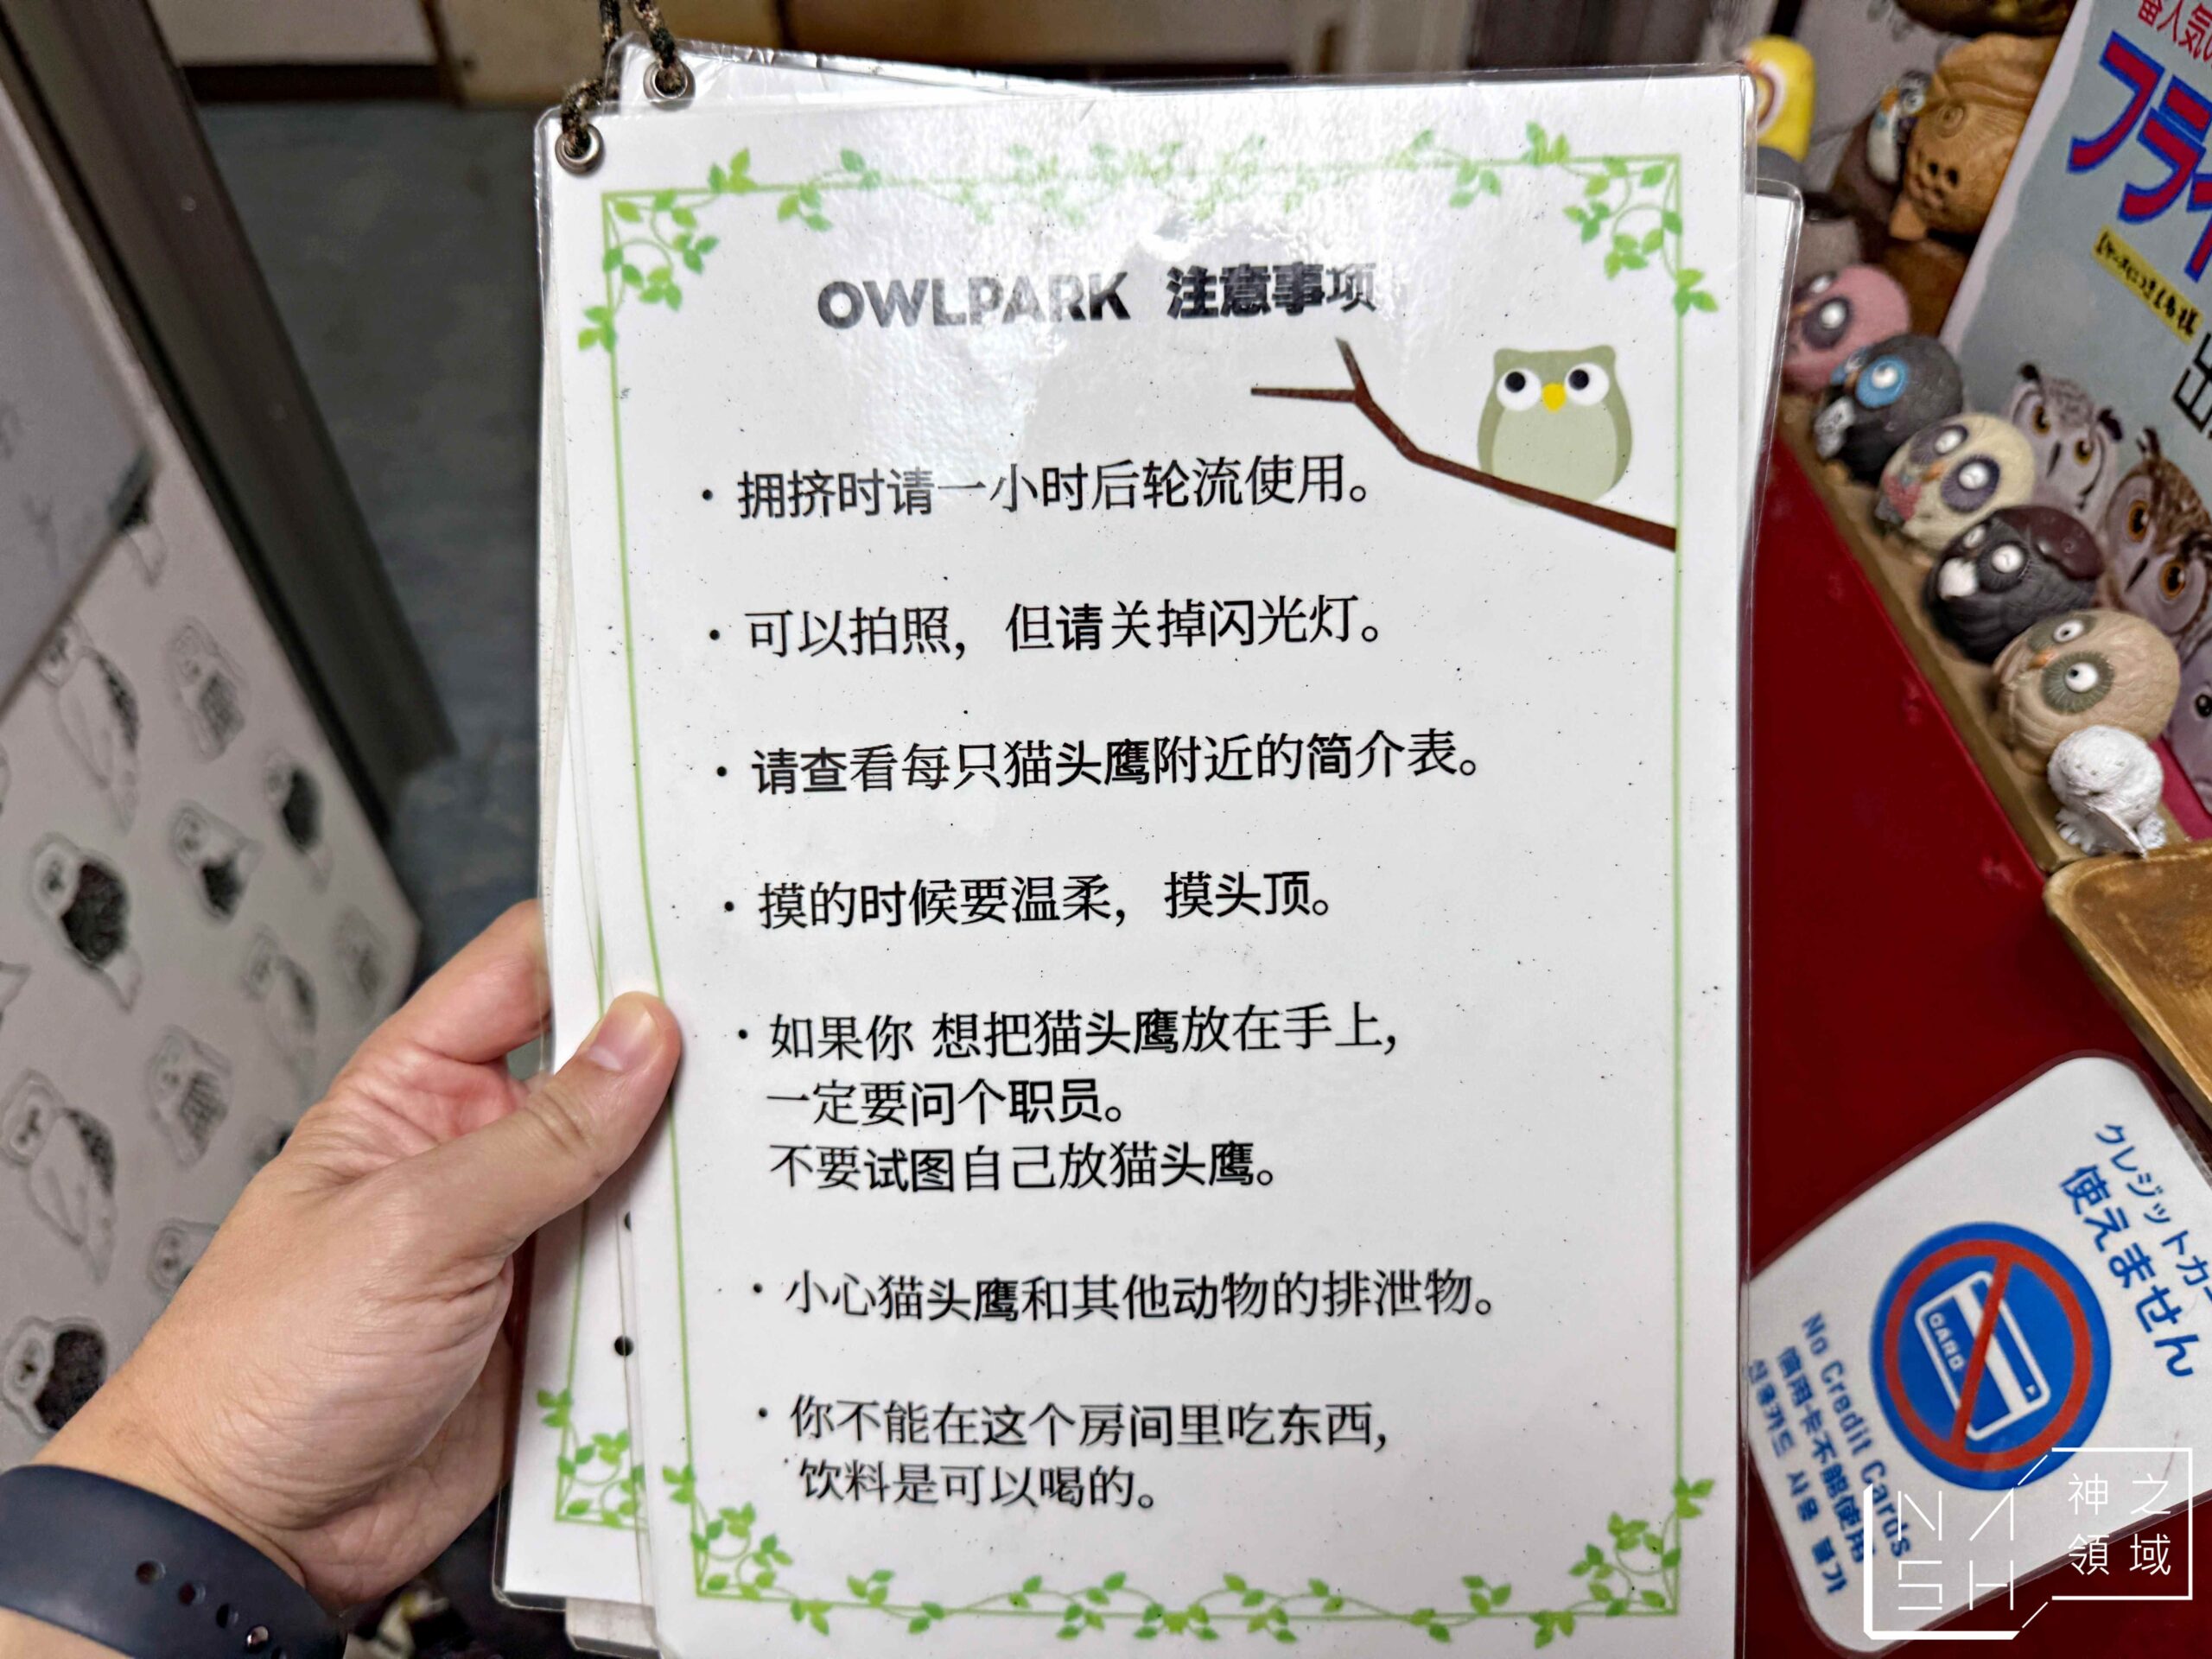 OWLPARK 注意事项
・拥挤时请一小时后轮流使用。
・可以拍照，但请关掉闪光灯。
・请查看每只猫头鹰附近的简介表。
・摸的时候要温柔，摸头顶。
・如果你 想把猫头鹰放在手上，
一定要问个职员。
不要试图自己放猫头鹰。
・小心猫头鹰和其他动物的排泄物。
・你不能在这个房间里吃东西，
饮料是可以喝的。
クレジットカー
使えません
CARD
No Credit Cards
信用卡不能使用
신용카드 사용 불가
NASH
神之
領域